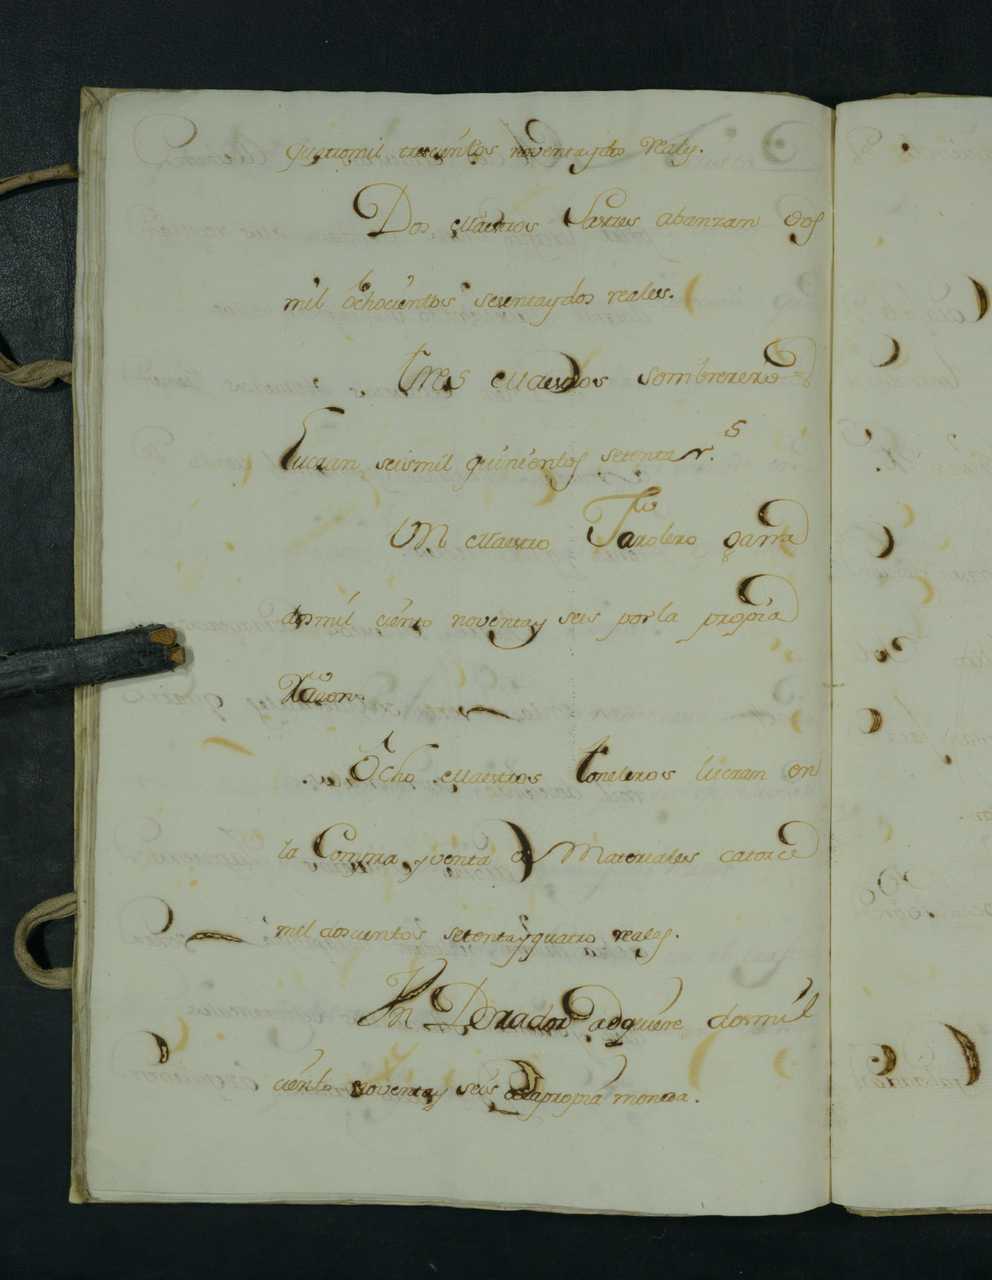 quatromil trescientos noventaydos reales.
Dos Maestros Sastres abanzan dos
mil ochocientos setentaydos reales.
Tres Maestros Sombrereros
Lucran seismil quinientos setenta r.s
Un Maestro Farolero gana
dosmil ciento noventay seis por la propia
Razon.
Ocho Maestros toneleros lucran en
la Compra, y venta de Materiales catorce
mil doscientos setentayquatro reales.
Un Dorador adquiere dosmil
ciento noventay seis dela propia moneda.